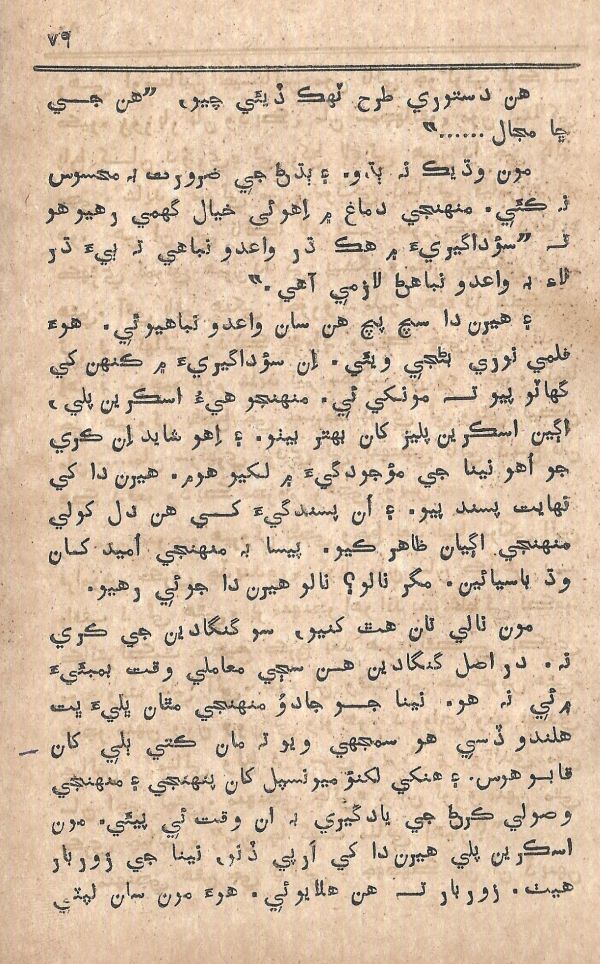 ٧٩
هن دستوري طرح ٽهڪ ڏيئي چيو، ”هن جـــي
ڇا مجال ......“
مون وڌيڪ نہ ٻڌو. ۽ ٻڌڻ جي ضرورت بہ محسوس
نہ ڪئي. منهنجي دماغ ۾ اِهوئي خيال گهمي رهيو هو
تـــ ”سؤداگيريءَ ۾ هڪ ڌر واعدو نباهي تہ ٻيءَ ڌر
لاءِ بہ واعدو نباهڻ لازمي آهي.“
۽ هيرن دا سچ پچ هن سان واعدو نباهيوئي. هوءَ
فلمي نوري بڻجي ويئي. اِن سؤداگيريءَ ۾ ڪنهن کي
گهاٽو پيو تـــ مونکي ئي. منهنجو هيءُ اسڪرين پلي،
اڳين اسڪرين پليز کان بهتر بيٺو. ۽ اِهو شايد اِن ڪري
جو اُهو نينا جي مؤجودگيءَ ۾ لکيو هوم. هيرن دا کي
نهايت پسند پيو. ۽ اُن پسندگيءَ کـــي هن دل کولي
منهنجي اڳيان ظاهر ڪيو. پيسا بہ منهنجي اُميد کان
وڌ باسيائين. مگر نالو؟ نالو هيرن دا جوئي رهيو.
مون نالي تان هٿ کنيو، سو گنگادين جي ڪري
نہ. در اصل گنگادين هـــن سڄي معاملي وقت بمبئيءَ
۾ ئي نہ هو. نينا جـــو جادوُ منهنجي مٿان ڀليءَ ڀت
هلندو ڏسي هو سمجهي ويو تہ مان ڪتي ٻلي کان
قابو هوس. ۽ هنکي لکنؤ ميونسپل کان پنهنجي ۽ منهنجي
وصولي ڪرڻ جي يادگيري بہ ان وقت ئي پيئي. مون
اسڪرين پلي هيرن دا کي اَرپي ڏنو، نينا جي زور بار
هيٺ. زور بار تـــ هن هلايوئي. هوءَ مون سان لپٽي